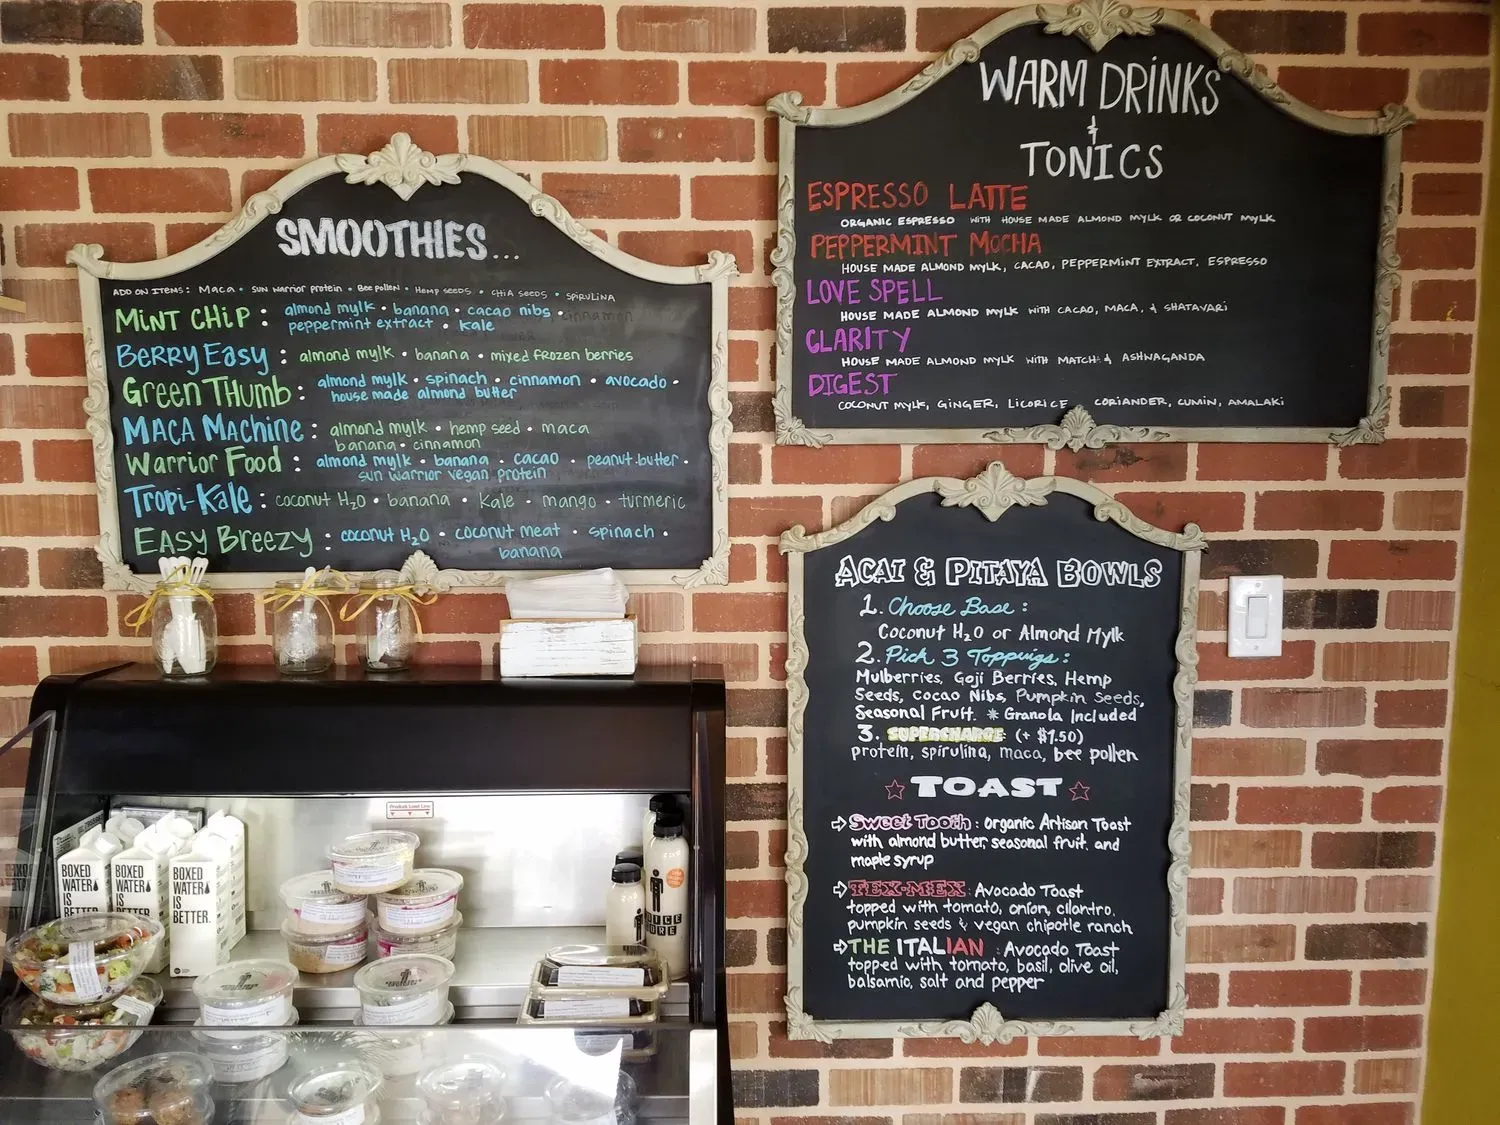 SMOOTHIES...
ADD ON ITEMS: Maca • SUN Warrior protein • Bee pollen • Hemp seeds • CHIA SEEDS • SPIRULINA
MINT CHIP : almond mylk • banana • cacao nibs •
peppermint extract • kale
BERRY EASY : almond mylk • banana • mixed frozen berries
GREEN THUMB : almond mylk • spinach • cinnamon • avocado •
house made almond butter
MACA MACHINE : almond mylk • hemp seed • maca
banana • cinnamon
WARRIOR FOOD : almond mylk • banana • cacao • peanut butter •
sun warrior vegan protein
TROPI-KALE : coconut H2O • banana • Kale • mango • turmeric
EASY BREEZY : coconut H2O • coconut meat • spinach •
banana
WARM DRINKS
&
TONICS
ESPRESSO LATTE
ORGANIC ESPRESSO WITH HOUSE MADE ALMOND MYLK OR COCONUT MYLK
PEPPERMINT MOCHA
HOUSE MADE ALMOND MYLK, CACAO, PEPPERMINT EXTRACT, ESPRESSO
LOVE SPELL
HOUSE MADE ALMOND MYLK WITH CACAO, MACA, & SHATAVARI
CLARITY
HOUSE MADE ALMOND MYLK WITH & ASHWAGANDA
DIGEST
COCONUT MYLK, GINGER, LICORICE CORIANDER, CUMIN, AMALAKI
ACAI & PITAYA BOWLS
1. Choose Base :
Coconut H2O or Almond Mylk
2. Pick 3 Toppings :
Mulberries, Goji Berries, Hemp
Seeds, Cocao Nibs, Pumpkin Seeds,
Seasonal Fruit. * Granola Included
3. SUPERCHARGE (+ $1.50)
protein, spirulina, maca, bee pollen
TOAST
Sweet Tooth : Organic Artisan Toast
with almond butter, seasonal fruit and
maple syrup
TEX-MEX : Avocado Toast
topped with tomato, onion, cilantro,
pumpkin seeds & vegan chipotle ranch
THE ITALIAN : Avocado Toast
topped with tomato, basil, olive oil,
balsamic, salt and pepper
Product Load Line
BOXED
WATER
IS
BETTER.
BOXED
WATER
IS
BETTER.
BOXED
WATER
IS
BETTER.